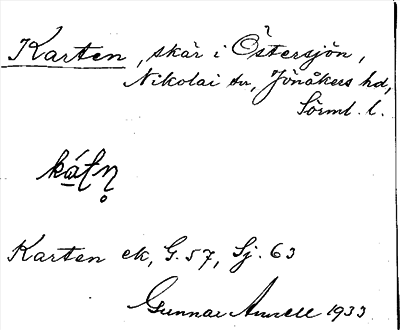 Karten, skär i Östersjön,
Nikolai sn, Jönåkers hd,
Sörml. l.
Karten ek, G. 57, Sj. 63
Gunnar Arnell 1933